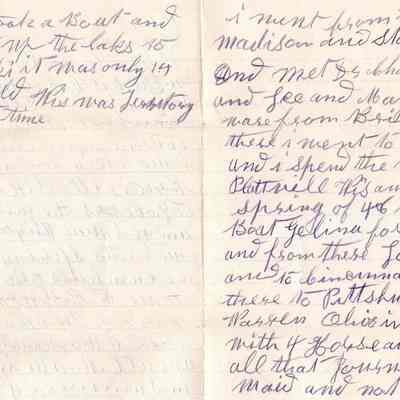 ook a Boat and
up the laks to
it was only 14
ld Wis was Territory
time
i ment from
Madison and Sto
And met
and Lee and Ma
ware from Bri
there i ment to
and i spend the
Plattvell Wis an
Spring of 46
Boat Gellina for
and from there
and to Cincinna
there to Pittsbu
Warren Ohio in
with 4 Horse
all that Journ
Maid and not